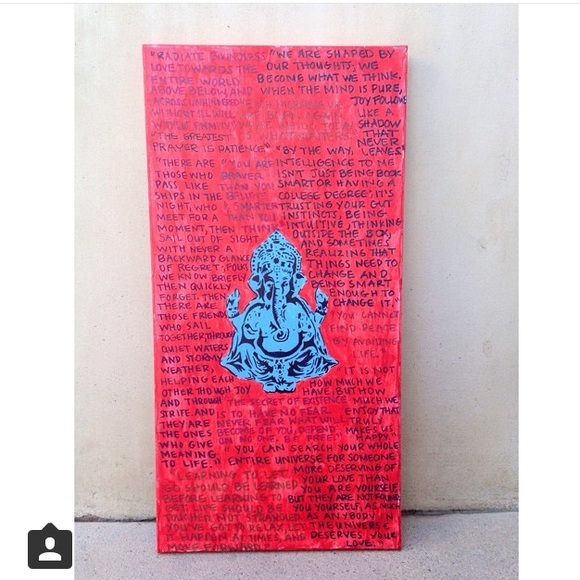 "RADIATE BOUNDLESS "WE ARE SHAPED BY
LOVE TOWARDS THE OUR THOUGHTS; WE
ENTIRE WORLD BECOME WHAT WE THINK.
ABOVE, BELOW, AND WHEN THE MIND IS PURE,
ACROSS UNHINDERED JOY FOLLOWS
WITHOUT ILL WILL LIKE A
WITHOUT ENMITY SHADOW
"THE GREATEST THAT
PRAYER IS PATIENCE" NEVER
LEAVES."
"BY THE WAY,
"THERE ARE "YOU ARE INTELLIGENCE TO ME
THOSE WHO BRAVER ISN'T JUST BEING BOOK
PASS LIKE THAN YOU SMART OR HAVING A
SHIPS IN THE BELIEVE COLLEGE DEGREE; IT'S
NIGHT, WHO SMARTER TRUSTING YOUR GUT
MEET FOR A THAN YOU INSTINCTS, BEING
MOMENT, THEN THINK INTUITIVE, THINKING
SAIL OUT OF SIGHT OUTSIDE THE BOX,
WITH NEVER A AND SOMETIMES
BACKWARD GLANCE REALIZING THAT
OF REGRET; FOLKS THINGS NEED TO
WE KNOW BRIEFLY CHANGE AND
THEN QUICKLY BEING SMART
FORGET. THEN ENOUGH TO
THERE ARE CHANGE IT."
THOSE FRIENDS YOU CANNOT
WHO SAIL FIND PEACE
TOGETHER, THROUGH BY AVOIDING
QUIET WATERS LIFE.
AND STORMY IT IS NOT
WEATHER, HOW MUCH WE
HELPING EACH HAVE, BUT HOW
OTHER THOUGH JOY MUCH WE
AND THROUGH THE SECRET OF EXISTENCE ENJOY THAT
STRIFE. AND IS TO HAVE NO FEAR. TRULY
THEY ARE NEVER FEAR WHAT WILL MAKES US
THE ONES BECOME OF YOU, DEPEND HAPPY."
WHO GIVE ON NO ONE, BE FREED
MEANING "YOU CAN SEARCH YOUR WHOLE
TO LIFE." ENTIRE UNIVERSE FOR SOMEONE
LEARNING TO LET MORE DESERVING OF
GO SHOULD BE LEARNED YOUR LOVE THAN
BEFORE LEARNING TO YOU ARE YOURSELF,
GET. LIFE SHOULD BE BUT THEY ARE NOT FOUND.
TOUCHED NOT STRANGLED. YOU YOURSELF, AS MUCH
YOU'VE GOT TO RELAX, LET AS ANYBODY IN
IT HAPPEN AT TIMES, AND THE UNIVERSE
MOVE FORWARD DESERVES YOUR
LOVE."